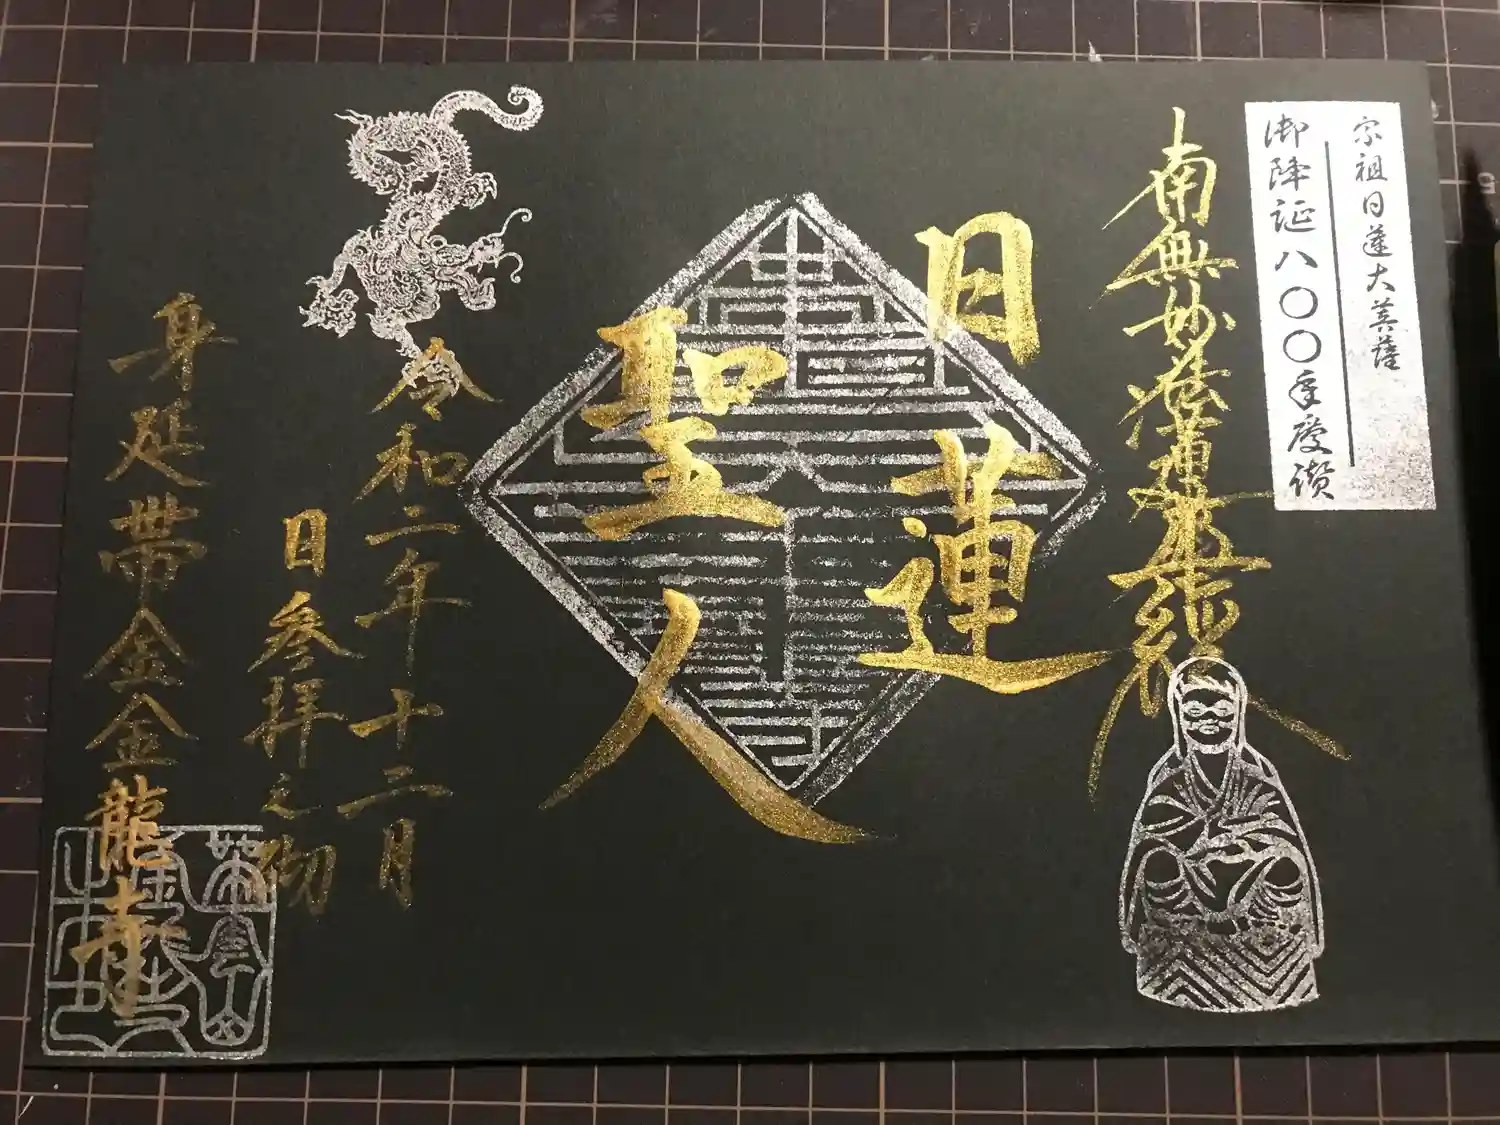 宗祖日蓮大菩薩
御降誕八〇〇年慶讃
南無妙法蓮華経
日蓮
聖人
令和二年十二月
日参拝之砌
身延帯金金龍寺